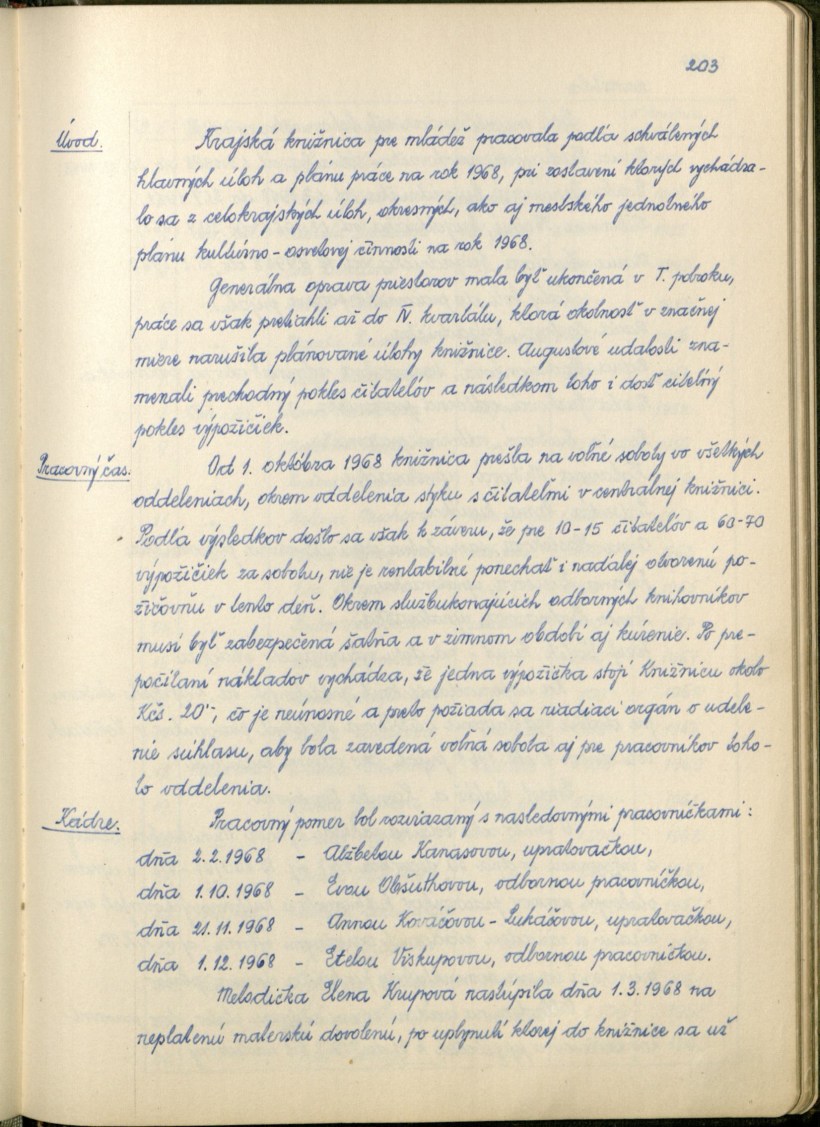 203
Úvod. Krajská knižnica pre mládež pracovala podľa schválených
hlavných úloh a plánu práce na rok 1968, pri zostavení ktorých vychádza-
lo sa z celokrajských úloh, okresných, ako aj mestského jednotného
plánu kultúrno-osvetovej činnosti na rok 1968.
Generálna oprava priestorov mala byť ukončená v I. polroku,
práce sa však pretiahli až do IV. kvartálu, ktorá okolnosť v značnej
miere narušila plánované úlohy knižnice. Augustové udalosti zna-
menali prechodný pokles čitateľov a následkom toho i dosť citeľný
pokles výpožičiek.
Pracovný čas. Od 1. októbra 1968 knižnica prešla na voľné soboty vo všetkých
oddeleniach, okrem oddelenia styku s čitateľmi v centrálnej knižnici.
Podľa výsledkov došlo sa však k záveru, že pre 10-15 čitateľov a 60-70
výpožičiek za sobotu, nie je rentabilné ponechať i naďalej otvorenú po-
žičovňu v tento deň. Okrem službukonajúcich odborných knihovníkov
musí byť zabezpečená šatňa a v zimnom období aj kúrenie. Po pre-
počítaní nákladov vychádza, že jedna výpožička stojí Knižnicu okolo
Kčs. 20'-, čo je neúnosné a preto požiada sa riadiaci orgán o udele-
nie súhlasu, aby bola zavedená voľná sobota aj pre pracovníkov toho-
to oddelenia.
Kádre. Pracovný pomer bol rozviazaný s nasledovnými pracovníčkami:
dňa 2.2.1968 - Alžbetou Kanasovou, upratovačkou,
dňa 1.10.1968 - Evou Obšuthovou, odbornou pracovníčkou,
dňa 21.11.1968 - Annou Kováčovou-Lukáčovou, upratovačkou,
dňa 1.12.1968 - Etelou Viskupovou, odbornou pracovníčkou.
Metodička Elena Krupová nastúpila dňa 1.3.1968 na
neplatenú materskú dovolenú, po uplynutí ktorej do knižnice sa už